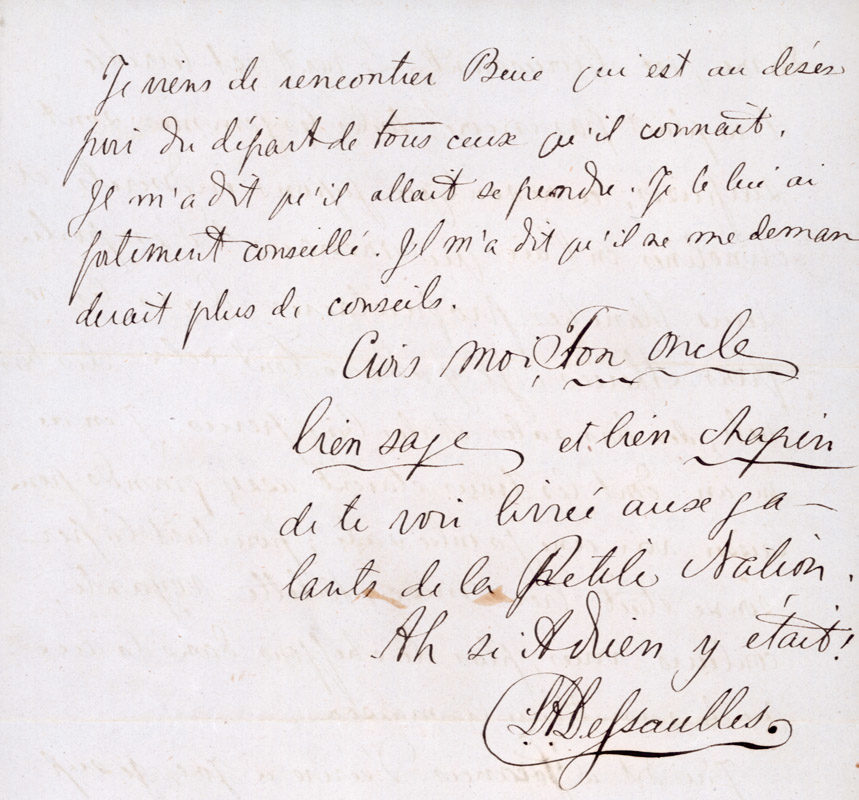 Je viens de rencontrer Buie qui est au déses
poir du départ de tous ceux qu'il connait.
Il m'a dit qu'il allait se pendre. Je le lui ai
fortement conseillé. Il m'a dit qu'il ne me deman
derait plus de conseils.
Crois moi, Ton oncle
bien sage et bien chagrin
de te voir livrée aux ga-
lants de la Petite Nation.
Ah si Adrien y était!
LADessaulles.